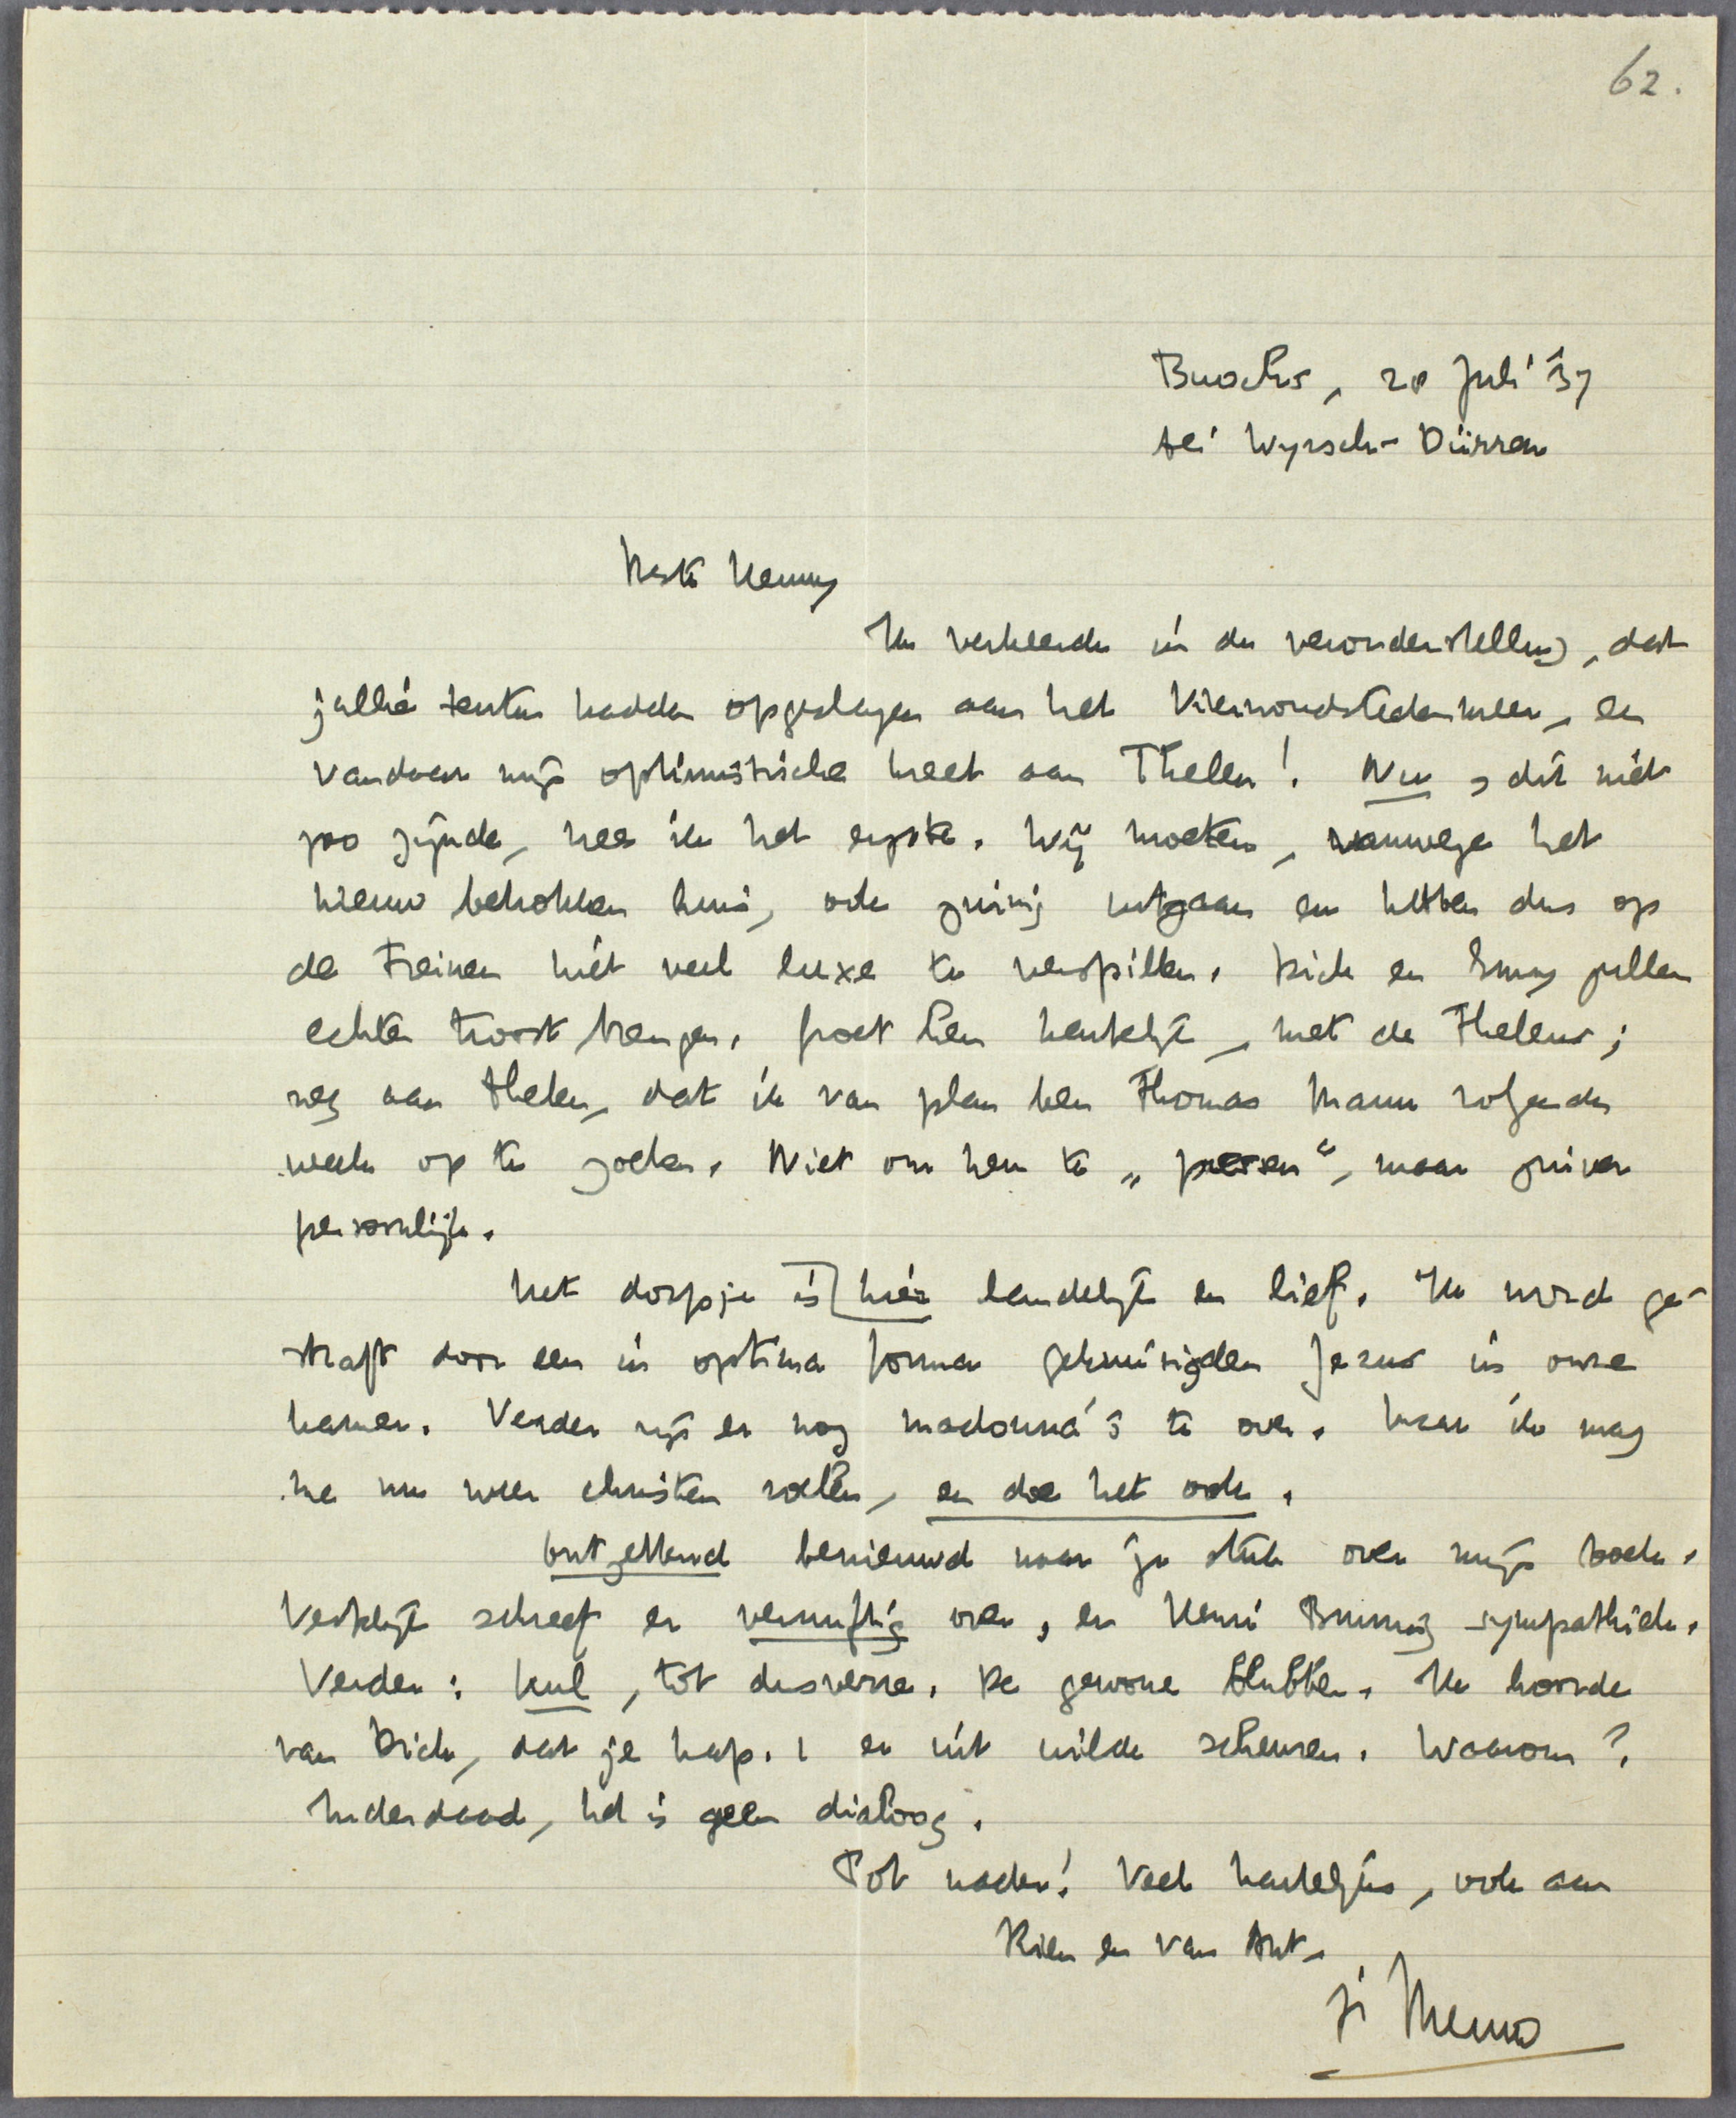 62.
Buochs, 20 Juli '37
bei Wyrsch-Dürren
Beste Henny
Ik verkeerde in de veronderstelling, dat
jullie tenten hadden opgeslagen aan het Vierwoudstedenmeer, en
vandaar mijn optimistische kreet aan Thelen! Nu, dit niet
zoo zijnde, vrees ik het ergste. Wij moeten, vanwege het
nieuw betrokken huis, ook zuinig uitgaan en hebben dus op
de treinen niet veel luxe te verspillen. Dick en Emmy zullen
echter troost brengen. Groet hen hartelijk, met de Thelens;
zeg aan Thelen, dat ik van plan ben Thomas Mann volgende
week op te zoeken. Niet om hem te „persen", maar zuiver
persoonlijk.
Het dorpje is hier landelijk en lief. Ik word ge-
straft door een in optima forma gekruisigden Jezus in onze
kamer. Verder zijn er nog madonna's te over. Maar ik mag
me nu weer christen voelen, en doe het ook.
Ontzettend benieuwd naar je stuk over mijn boek.
Vestdijk schreef er vernuftig over, en Henri Bruning sympathiek.
Verder: kul, tot dusverre. De gewone blubber. Ik hoorde
van Dick, dat je hfp. 1 er uit wilde scheuren. Waarom?
Inderdaad, het is geen dialoog.
Tot nader! Veel hartelijks, ook aan
Rien en van Ant.
je Menno